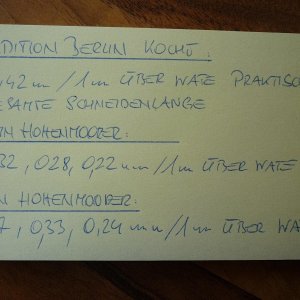 DITION BERLIN KOCHT:
,42mm / 1mm ÜBER WATE PRAKTISC
ESAMTE SCHNEIDENLÄNGE
N HOHENMOORER:
32, 028, 0,22mm / 1mm ÜBER WATE
N HOHENMOORER:
7, 0,33, 0,24mm / 1mm ÜBER WA